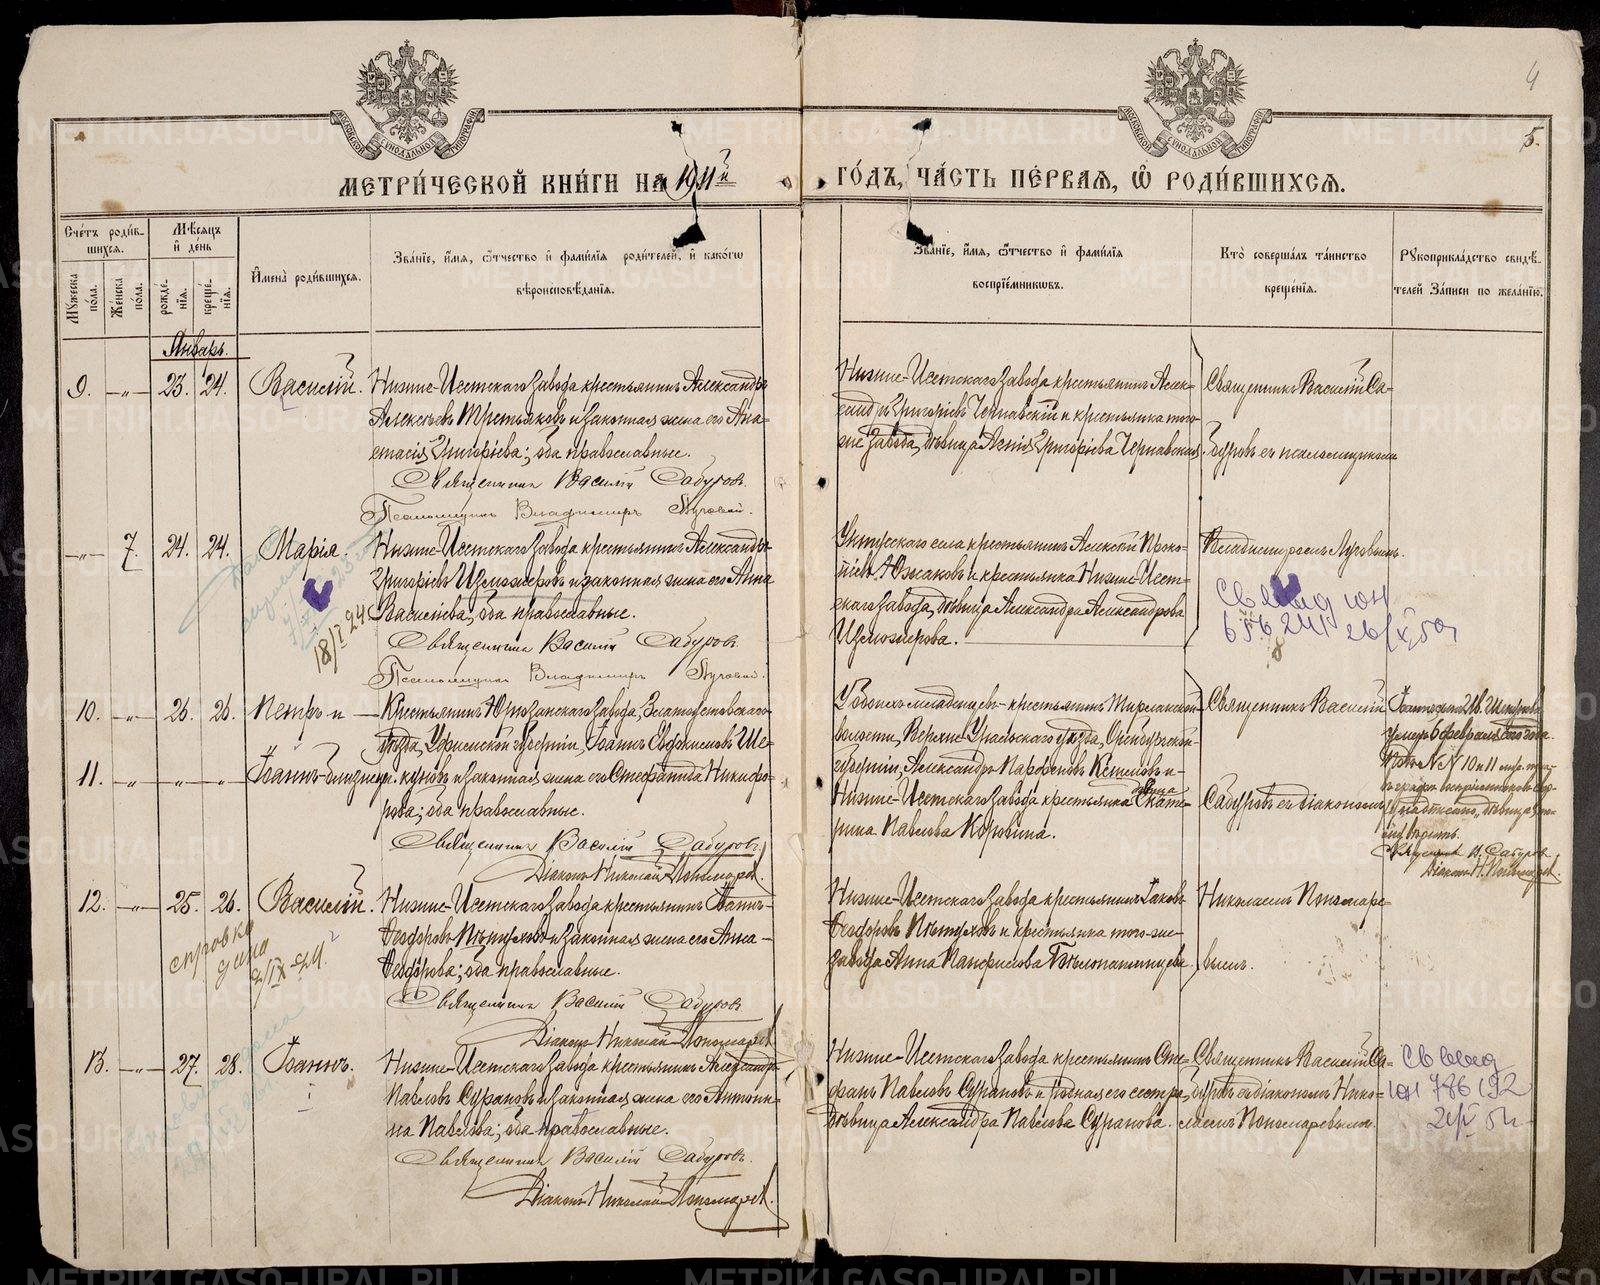 4
5.
МОСКОВСКОЙ СѴНОДАЛЬНОЙ ТИПОГРАФІИ
МОСКОВСКОЙ СѴНОДАЛЬНОЙ ТИПОГРАФІИ
МЕТРИ́ЧЕСКОЙ КНИ́ГИ НА 1911й ГО́ДЪ, ЧА́СТЬ ПЕ́РВАѦ, Ѡ҆ РОДИ́ВШИХСѦ.
Сче́тъ роди́вшихсѧ.
Мѣ́сѧцъ и҆ де́нь
Мꙋ́жеска по́ла.
Же́нска по́ла.
рожде́нїѧ.
креще́нїѧ.
И҆мена̀ роди́вшихсѧ.
Зва́нїе, и҆́мѧ, ѻ҆́тчество и҆ фами́лїѧ роди́телей, и҆ како́гѡ
вѣроисповѣ́данїѧ.
Зва́нїе, и҆́мѧ, ѻ҆́тчество и҆ фами́лїѧ
воспрїе́мникѡвъ.
Кто̀ соверша́лъ та́инство
креще́нїѧ.
Рꙋкоприкла́дство свидѣ́-
телей За́писи по жела́нїю.
Январь.
9. -„- 23. 24. Василій.
Нижне-Исетскаго завода крестьянинъ Александръ
Алексѣевъ Третьяковъ и законная жена его Ана-
стасія Григорьева; оба православные.
Священникъ Василій Сабуровъ.
Псаломщикъ Владимиръ Луговой.
Нижне-Исетскаго завода крестьянинъ Алек-
сандръ Григорьевъ Чернавскій и крестьянка того-
же завода, дѣвица Агнія Григорьева Чернавская.
Священникъ Василій Са-
буровъ съ псаломщикомъ
-„- 7. 24. 24. Марія.
Нижне-Исетскаго завода крестьянинъ Александръ
Григорьевъ Изможеровъ и законная жена его Анна
Васильева, оба православные.
Священникъ Василій Сабуровъ.
Псаломщикъ Владимиръ Луговой.
18/I 24
Уктусского села крестьянинъ Алексѣй Проко-
пьевъ Южаковъ и крестьянка Нижне-Исет-
скаго завода, дѣвица Александра Александрова
Изможерова.
Владимиромъ Луговымъ.
10. -„- 26. 26. Петръ и
11. -„- „ -„- Іоаннъ-близнецы.
Крестьянинъ Юрюзанскаго завода, Златоустовскаго
уѣзда, Уфимской губерніи, Іоаннъ Евфимовъ Ше-
куновъ и законная жена его Стефанида Никифо-
рова; оба православные.
Священникъ Василій Сабуровъ.
Діаконъ Николай Пономаревъ.
Обоихъ младенцевъ - крестьянинъ
волости, Верхне-Уральскаго уѣзда, Оренбургской
губерніи, Александръ Парфеновъ и
Нижне-Исетскаго завода крестьянка дѣвица Екате-
рина Павлова Коровина.
Священникъ Василій
Сабуровъ съ діакономъ
умеръ 6 февраля сего года.
№№ 10 и 11
Священникъ В. Сабуровъ
Діаконъ Н. Пономаревъ.
12. -„- 25. 26. Василій.
Нижне-Исетскаго завода крестьянинъ Іоаннъ
Ѳеодоровъ Пѣтуховъ и законная жена его Анна
Ѳеодорова; оба православные.
Священникъ Василій Сабуровъ
Діаконъ Николай Пономаревъ.
справка
дана
Нижне-Исетскаго завода крестьянинъ Іаковъ
Ѳеодоровъ Пѣтуховъ и крестьянка того-же
завода Анна Панфилова Бѣлопашинцева.
Николаемъ Пономаре-
вымъ.
13. -„- 27. 28. Іоаннъ.
Нижне-Исетскаго завода крестьянинъ Александръ
Павловъ Сурановъ и законная жена его Антони-
на Павлова; оба православные.
Священникъ Василій Сабуровъ.
Діаконъ Николай Пономаревъ.
Нижне-Исетскаго завода крестьянинъ Сте-
фанъ Павловъ Сурановъ и родная его сестра,
дѣвица Александра Павлова Суранова.
Священникъ Василій Са-
буровъ съ діакономъ Нико-
лаемъ Пономаревымъ.
METRIKI.GASO-URAL.RU